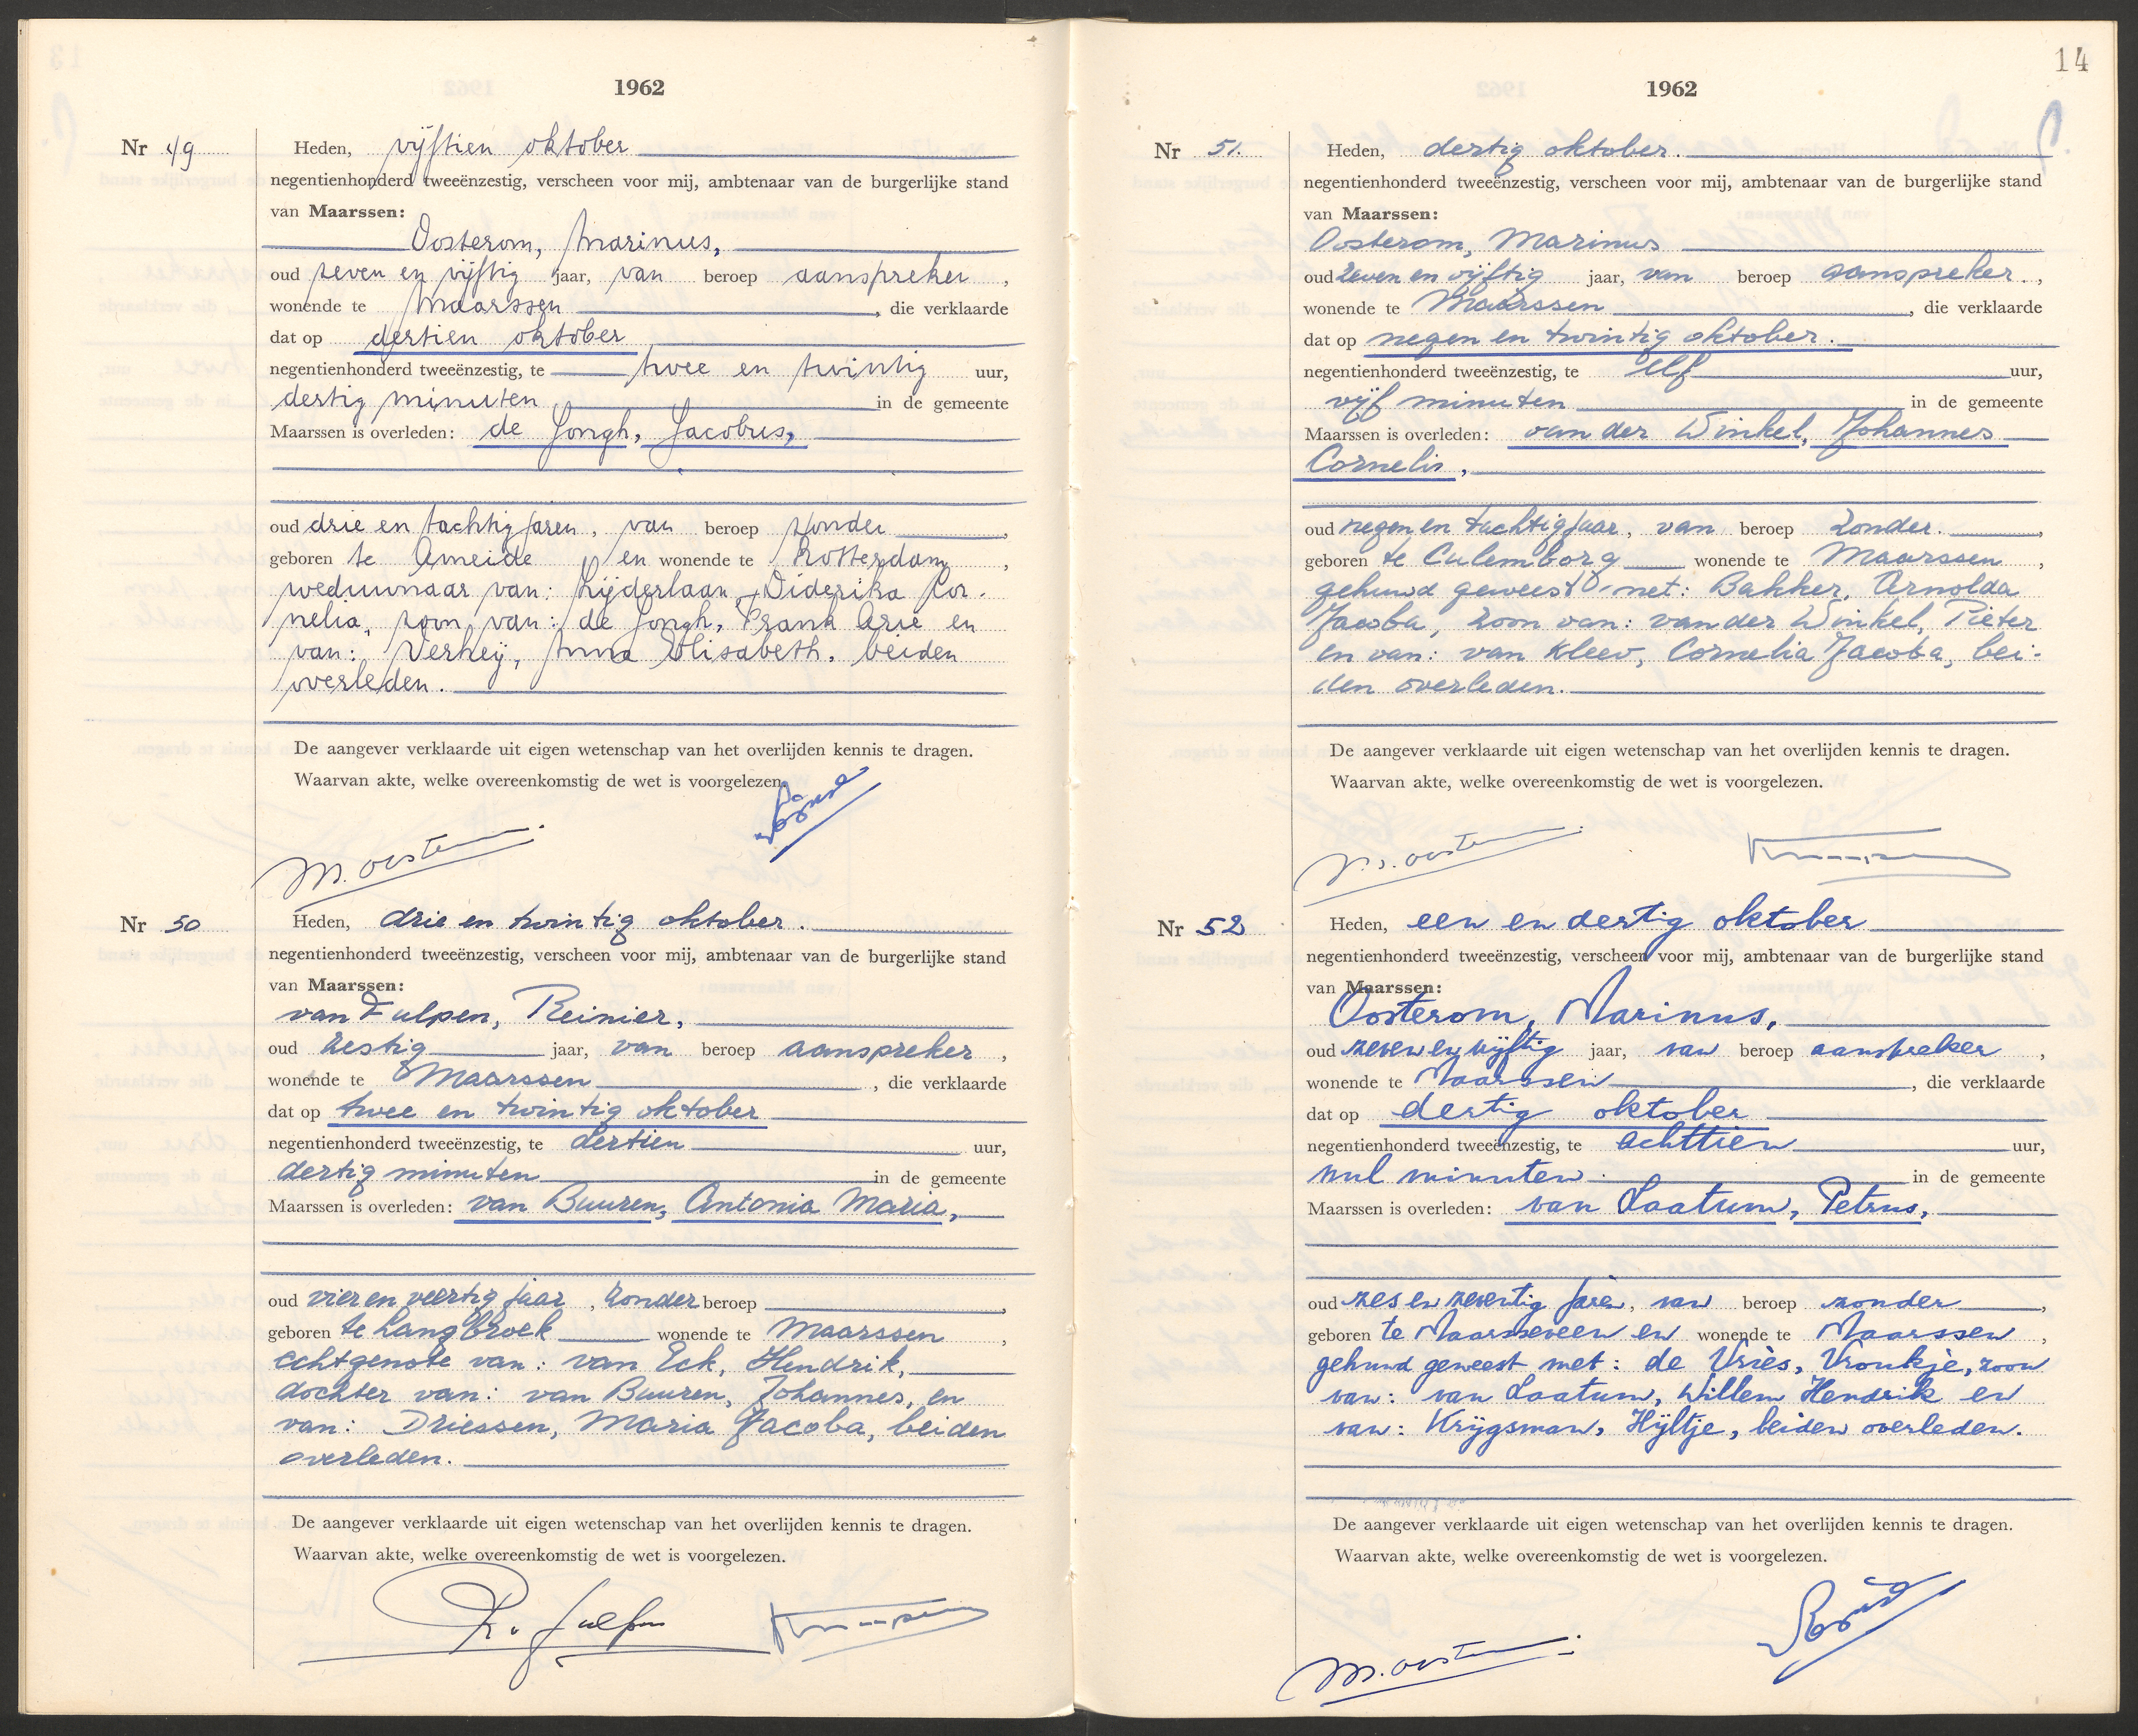 1962
Nr 49
Heden, vijftien oktober
negentienhonderd tweeënzestig, verscheen voor mij, ambtenaar van de burgerlijke stand
van Maarssen:
Oosterom, Marinus,
oud zeven en vijftig jaar, van beroep aanspreker,
wonende te Maarssen, die verklaarde
dat op dertien oktober
negentienhonderd tweeënzestig, te twee en twintig uur,
dertig minuten in de gemeente
Maarssen is overleden: de Jongh, Jacobus,
oud drie en tachtig jaren, van beroep zonder,
geboren te Ameide en wonende te Rotterdam,
weduwnaar van: Lijderlaan, Diderika Cor-
nelia, zoon van: de Jongh, Frank Arie en
van: Verheij, Anna Elisabeth, beiden
overleden.
De aangever verklaarde uit eigen wetenschap van het overlijden kennis te dragen.
Waarvan akte, welke overeenkomstig de wet is voorgelezen.
M. Oosterom
Nr 50
Heden, drie en twintig oktober.
negentienhonderd tweeënzestig, verscheen voor mij, ambtenaar van de burgerlijke stand
van Maarssen:
van Fulpen, Reinier,
oud zestig jaar, van beroep aanspreker,
wonende te Maarssen, die verklaarde
dat op twee en twintig oktober
negentienhonderd tweeënzestig, te dertien uur,
dertig minuten in de gemeente
Maarssen is overleden: van Buuren, Antonia Maria,
oud vier en veertig jaar, zonder beroep,
geboren te Langbroek wonende te Maarssen,
echtgenote van: van Eck, Hendrik,
dochter van: van Buuren, Johannes, en
van: Driessen, Maria Jacoba, beiden
overleden.
De aangever verklaarde uit eigen wetenschap van het overlijden kennis te dragen.
Waarvan akte, welke overeenkomstig de wet is voorgelezen.
R. v. Fulpen
14
1962
Nr 51.
Heden, dertig oktober.
negentienhonderd tweeënzestig, verscheen voor mij, ambtenaar van de burgerlijke stand
van Maarssen:
Oosterom, Marinus
oud zeven en vijftig jaar, van beroep aanspreker.,
wonende te Maarssen, die verklaarde
dat op negen en twintig oktober.
negentienhonderd tweeënzestig, te elf uur,
vijf minuten in de gemeente
Maarssen is overleden: van der Winkel, Johannes
Cornelis,
oud negen en tachtig jaar, van beroep zonder.,
geboren te Culemborg wonende te Maarssen,
gehuwd geweest met: Bakker, Arnolda
Jacoba, zoon van: van der Winkel, Pieter
en van: van Kleev, Cornelia Jacoba, bei-
den overleden.
De aangever verklaarde uit eigen wetenschap van het overlijden kennis te dragen.
Waarvan akte, welke overeenkomstig de wet is voorgelezen.
M. Oosterom
Nr 52
Heden, een en dertig oktober
negentienhonderd tweeënzestig, verscheen voor mij, ambtenaar van de burgerlijke stand
van Maarssen:
Oosterom, Marinus,
oud zeven en vijftig jaar, van beroep aanspreker,
wonende te Maarssen, die verklaarde
dat op dertig oktober
negentienhonderd tweeënzestig, te achttien uur,
nul minuten. in de gemeente
Maarssen is overleden: van Laatum, Petrus,
oud zes en zeventig jaren, van beroep zonder,
geboren te Maarsseveen en wonende te Maarssen,
gehuwd geweest met: de Vries, Vroukje, zoon
van: van Laatum, Willem Hendrik en
van: Krijgsman, Hijltje, beiden overleden.
De aangever verklaarde uit eigen wetenschap van het overlijden kennis te dragen.
Waarvan akte, welke overeenkomstig de wet is voorgelezen.
M. Oosterom